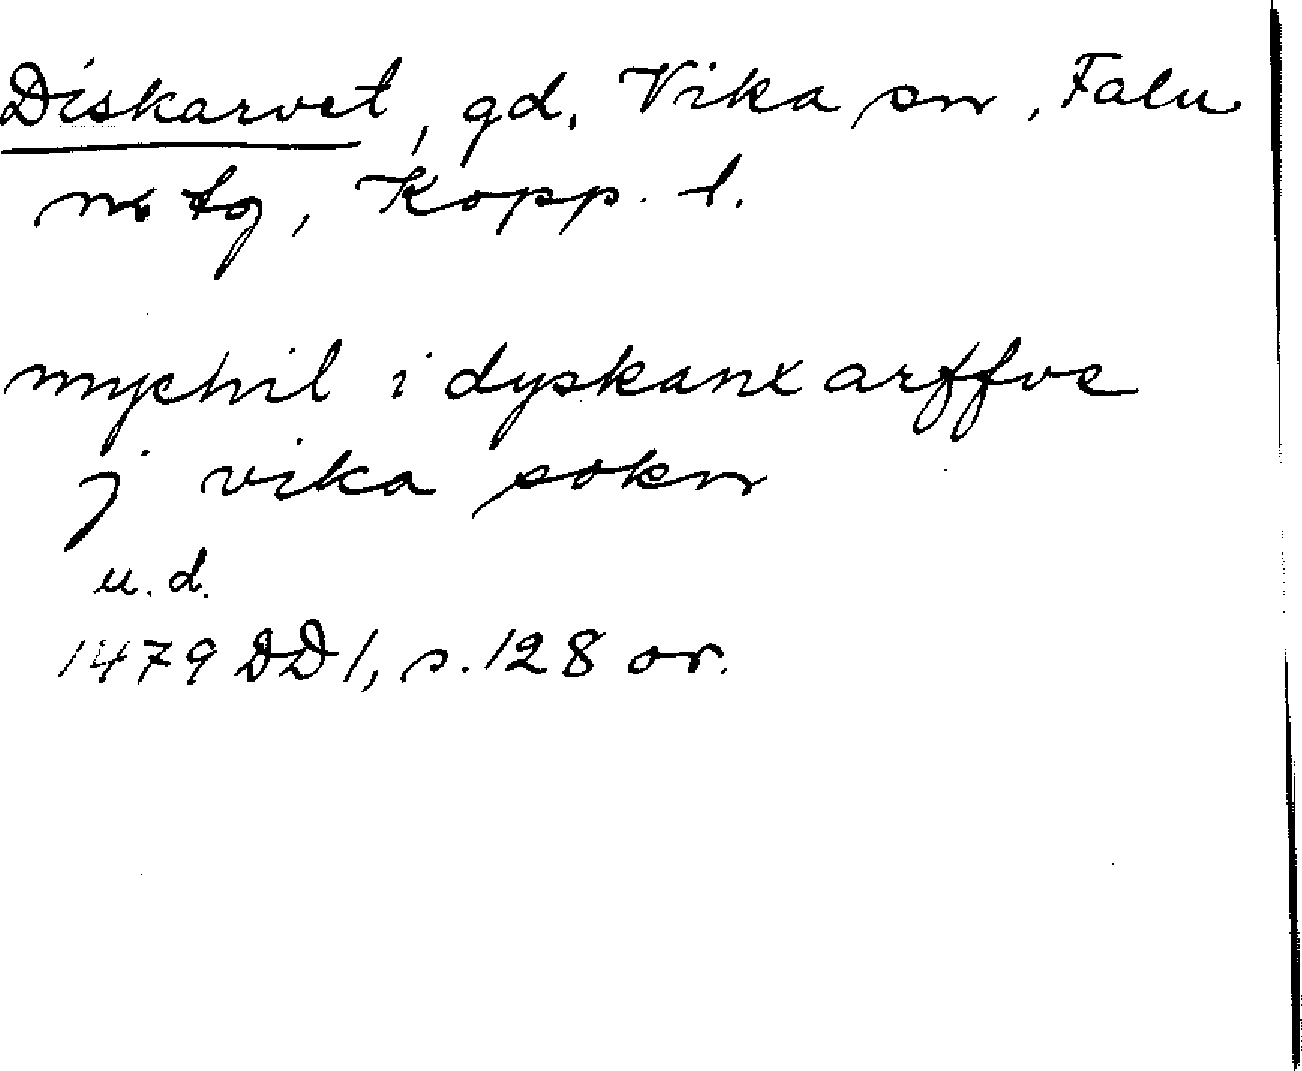 Diskarvet, gd, Vika sn, Falu
ns tg, Kopp. l.
mychil i dyskanx arffve
j vika sokn
u. d.
1479 DD 1, s. 128 or.